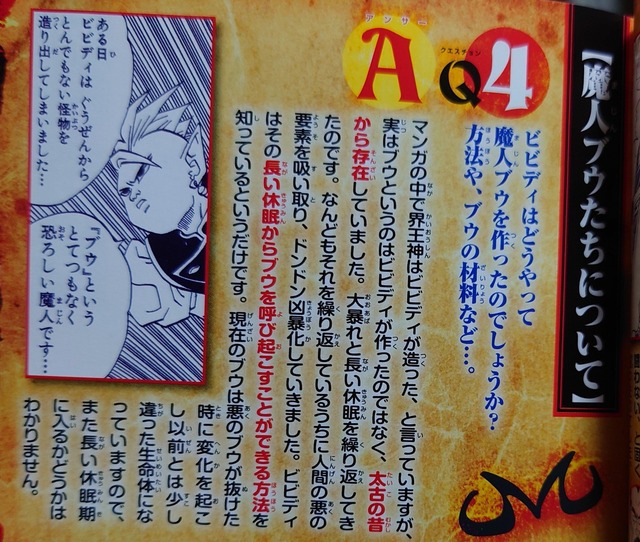 【魔人ブウたちについて】
クエスチョン
Q4
ビビディはどうやって
魔人ブウを作ったのでしょうか?
方法や、ブウの材料など…。
アンサー
A
マンガの中で界王神はビビディが造った、と言っていますが、
実はブウというのはビビディが作ったのではなく、太古の昔
から存在していました。大暴れと長い休眠を繰り返してき
たのです。なんどもそれを繰り返しているうちに人間の悪の
要素を吸い取り、ドンドン凶暴化していきました。ビビディ
はその長い休眠からブウを呼び起こすことができる方法を
知っているというだけです。現在のブウは悪のブウが抜けた
時に変化を起こ
し以前とは少し
違った生命体にな
っていますので、
また長い休眠期
に入るかどうかは
わかりません。
ある日
ビビディは ぐうぜんから
とんでもない怪物を
造り出してしまいました…
『ブウ』という
とてつもなく
恐ろしい魔人です…